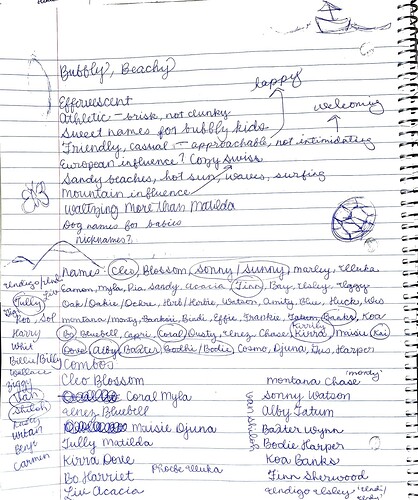 Bubbly, Beachy
happy
Effervescent
welcoming
Athletic - brisk, not clunky
Sweet names for bubbly kids
Friendly, casual - approachable, not intimidating
European influence? Cozy Swiss
Sandy beaches, hot sun, waves, surfing
Mountain influence
Waltzing more than Matilda
Dog names for babies
nicknames?
Indigo
Names: Cleo Blossom Sonny/Sunny Marley Illuka
Eamon, Myla, Pia, Sandy, Acacia Finn, Bay, Wesley, Iggy
Tully
Oak/Oakie/Ochre Herb/Herbie, Watson, Amity, Blue, Huck, Wes
Sol Montana/Monty, Banksie, Birdi, Effie, Frankie, Tatum, Banks, Koa
Kirrily
Harry Bo Bluebell, Capri, Coral, Dusty, Inez, Chase, Kirra, Maisie Kai
Whit Dove Alby Baxter Bodhi/Bodie, Cosmo, Djuna, Gus, Harper
Billie/Billy Combos
Wallace Cleo Blossom Montana Chase "Monty"
Ziggy Coral Myla Sonny Watson
Van Inez Bluebell Van Shiloh Alby Tatum
Shiloh Maisie Djuna Baxter Wynn
Tully Matilda Bodie Harper
Benji Kirra Dove Koa Banks
Carmen Bo Harriet Phoebe Illuka Finn Sherwood
Liv Acacia Indigo Wesley